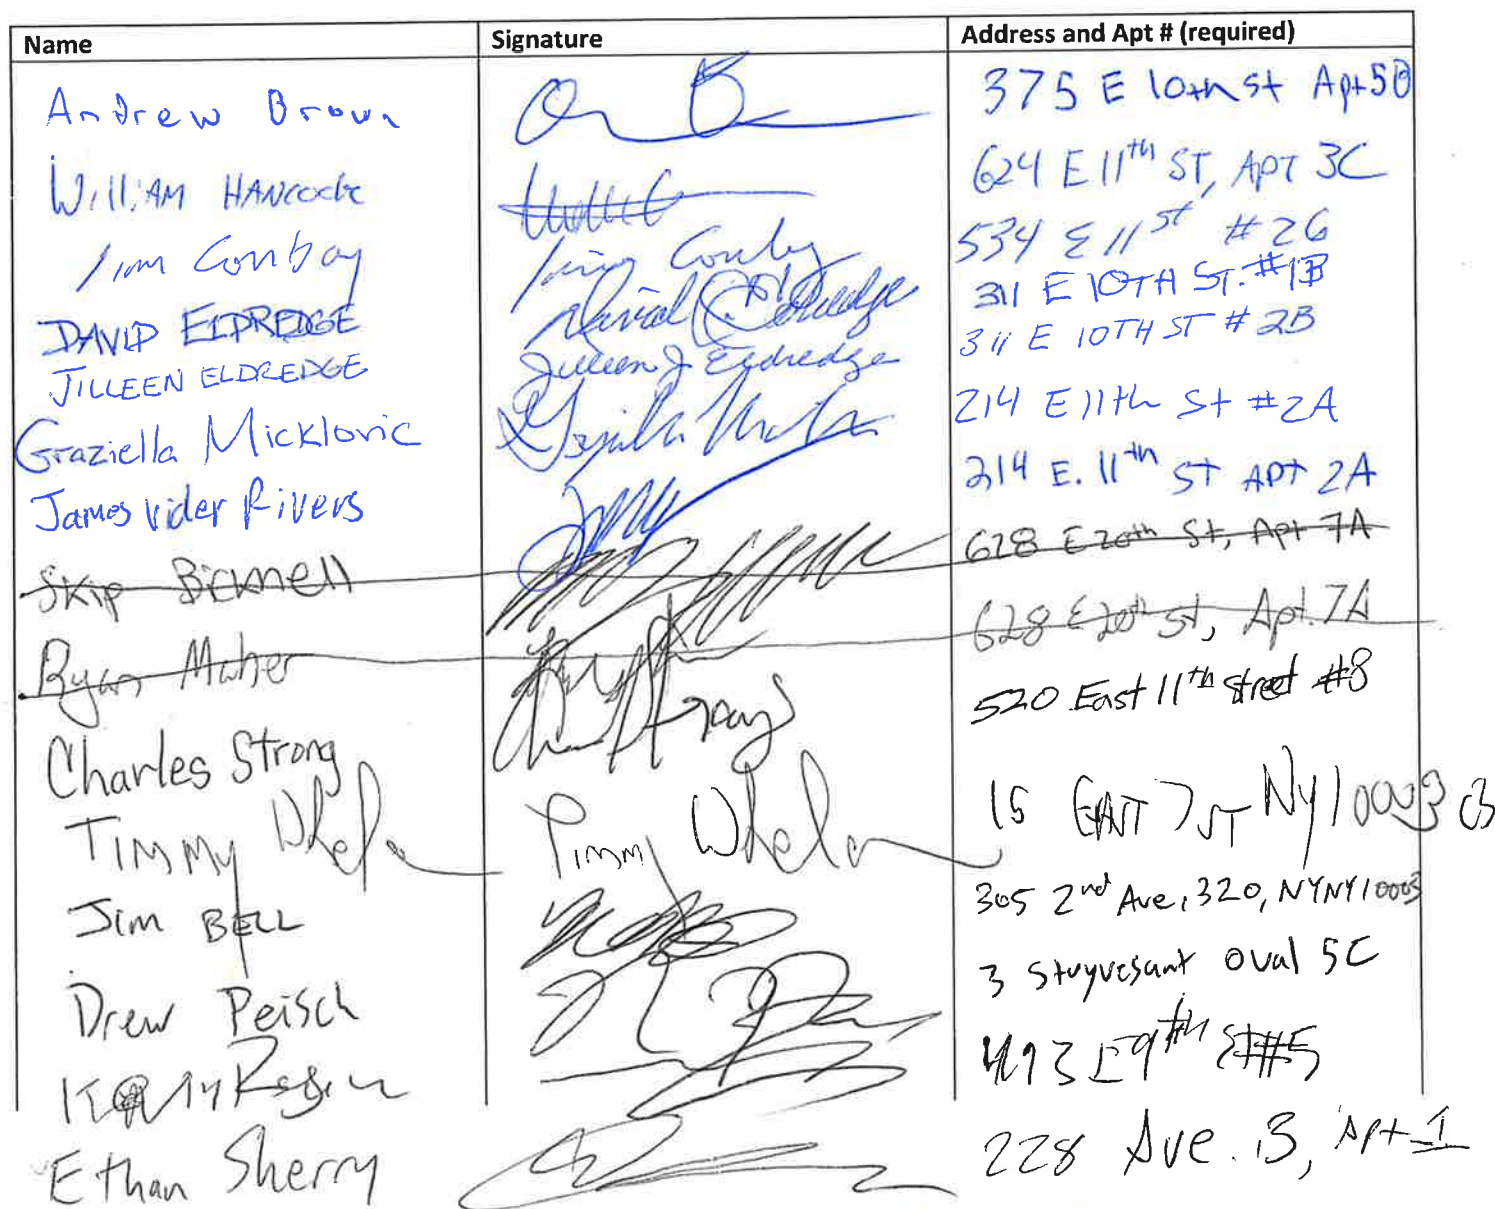 Name Signature Address and Apt # (required)
Andrew Brown 375 E 10th St Apt 5B
William Hancock 624 E 11th ST, APT 3C
Conboy Conboy 534 E 11 st # 2G
DAVID ELDREDGE David C. Eldredge 311 E 10TH ST. #1B
JILLEEN ELDREDGE Jilleen J Eldredge 311 E 10TH ST # 2B
Graziella Micklovic 214 E 11th St #2A
James Vider Rivers 214 E. 11th ST APT 2A
Skip Bicknell 628 E 20th St, Apt 7A
Ryan Maher 628 E 20th St, Apt. 7A
Charles Strong 520 East 11th Street #8
Timmy Whelan Timmy Whelan 15 EAST 7 ST NY 10003 03
Jim BELL 305 2nd Ave, 320, NYNY 10003
Drew Peisch 3 Stuyvesant Oval 5C
493 E 9th St #5
Ethan Sherry 228 Ave. B, Apt 1